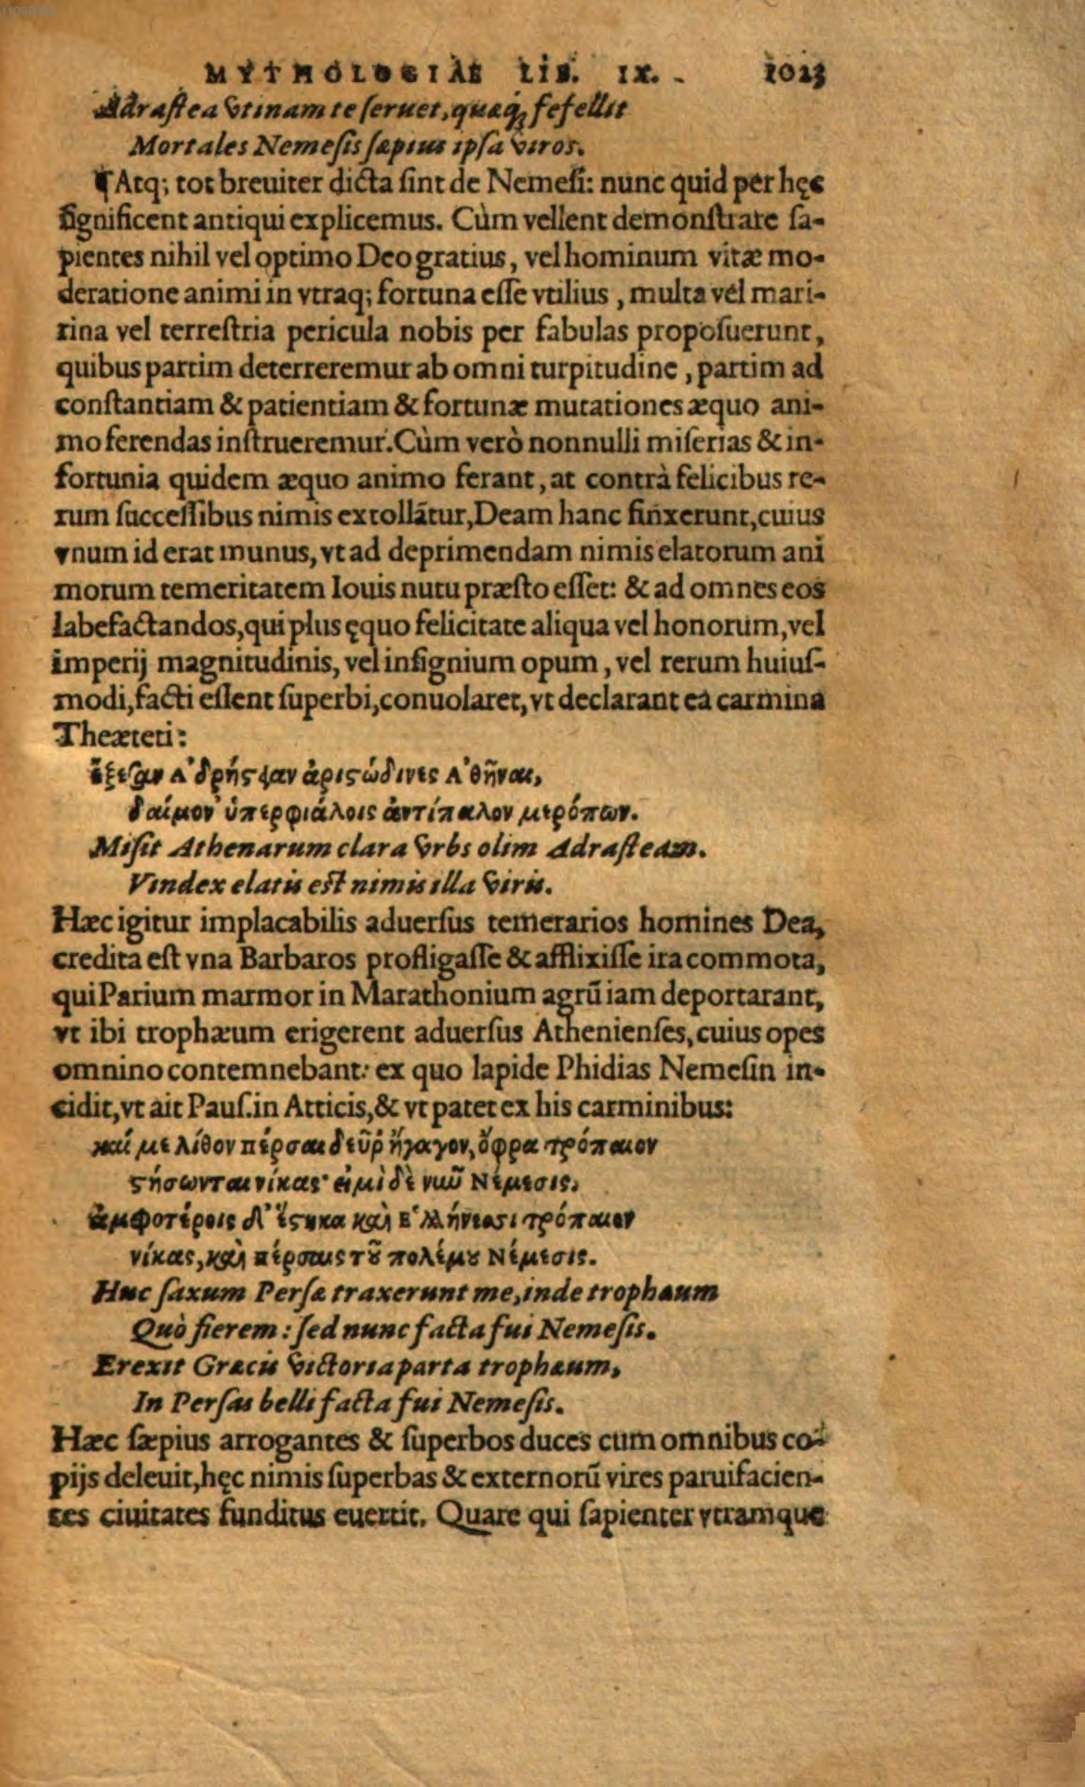 MYTHOLOGIAE LIB. IX. 1023
Adrastea vtinam te seruet, quæq; fefellit
Mortales Nemesis sæpius ipsa viros.
¶ Atq; tot breuiter dicta sint de Nemesi: nunc quid per hęc
significent antiqui explicemus. Cùm vellent demonstrare sa-
pientes nihil vel optimo Deo gratius, vel hominum vitæ mo-
deratione animi in vtraq; fortuna esse vtilius, multa vel mari-
rina vel terrestria pericula nobis per fabulas proposuerunt,
quibus partim deterreremur ab omni turpitudine, partim ad
constantiam & patientiam & fortunæ mutationes æquo ani-
mo ferendas instrueremur. Cùm verò nonnulli miserias & in-
fortunia quidem æquo animo ferant, at contrà felicibus re-
rum successibus nimis extollãtur, Deam hanc finxerunt, cuius
vnum id erat munus, vt ad deprimendam nimis elatorum ani
morum temeritatem Iouis nutu præsto esset: & ad omnes eos
labefactandos, qui plus ęquo felicitate aliqua vel honorum, vel
imperij magnitudinis, vel insignium opum, vel rerum huius-
modi, facti essent superbi, conuolaret, vt declarant ea carmina
Theæteti:
ἔξεσαν Α᾿δρήςφαν ἀριςώδινες Α᾿θῆναι,
δαίμον᾿ ὑπερφιάλοις ἀντίπαλον μερόπων.
Misit Athenarum clara vrbs olim Adrasteam.
Vindex elatis est nimis illa viris.
Hæc igitur implacabilis aduersus temerarios homines Dea,
credita est vna Barbaros profligasse & afflixisse ira commota,
qui Parium marmor in Marathonium agrũ iam deportarant,
vt ibi trophæum erigerent aduersus Athenienses, cuius opes
omnino contemnebant: ex quo lapide Phidias Nemesin in-
cidit, vt ait Paus. in Atticis, & vt patet ex his carminibus:
καί με λίθον πέρσαι δεῦρ᾿ ἤγαγον, ὄφρα τρόπαιον
ςήσωνται νίκας· εἰμὶ δὲ νιῦ Νέμεσις,
ἀμφοτέροις δ᾿ ἕςηκα καὶ Ε῾λλήνεσσι τρόπαιον
νίκας, καὶ πέρσαις τοῦ πολέμου Νέμεσις.
Huc saxum Persæ traxerunt me, inde trophæum
Quò fierem: sed nunc facta fui Nemesis.
Erexit Græcis victoria parta trophæum,
In Persas belli facta fui Nemesis.
Hæc sæpius arrogantes & superbos duces cum omnibus co-
pijs deleuit, hęc nimis superbas & externorũ vires paruifacien-
tes ciuitates funditus euertit. Quare qui sapienter vtramque